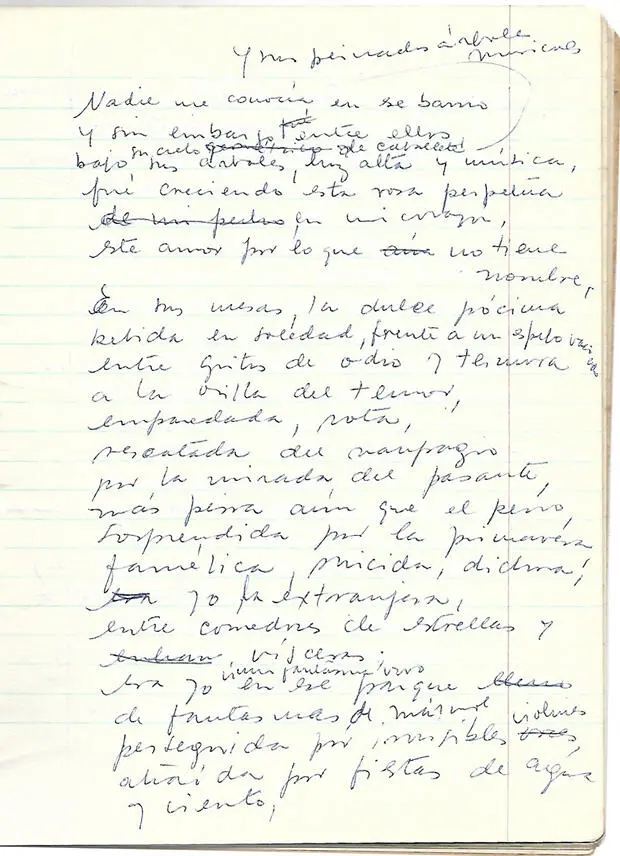 Y sus peinados árboles
musicales
Nadie me conocía en ese barrio
fué
Y sin embargo, entre ellos
su cielo geométrico de caballete
bajo sus árboles, luz alta y música,
fué creciendo esta rosa perpetua
de mi pedro en mi corazón,
este amor por lo que aún no tiene
nombre,
En sus mesas, la dulce pócima
bebida en soledad, frente a un espejo vaciado
entre gritos de odio y ternura
a la orilla del temor,
emparedada, rota,
rescatada del naufragio
por la mirada del pasante,
más perra aún que el perro,
sorprendida por la primavera
famélica, suicida, dichosa,
era yo la extranjera,
entre comedores de estrellas y
vísceras.
único fantasma vivo
era yo en ese parque lleno
de fantasmas de mármol violines
perseguida por invisibles
atraída por fiestas de agua
y viento,